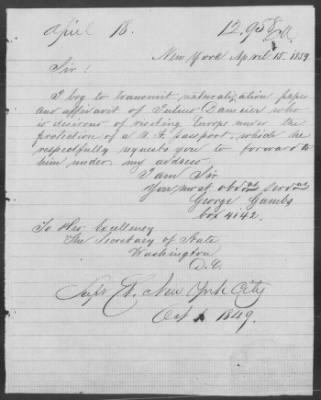 April 18.
12,958
New York April 15. 1859
Sir:
I beg to transmit naturalization paper
and affidavit of Julius who
is desirous of visiting Europe under the
protection of a passport, which he
respectfully requests you to forward to
him under my address.
I am Sir
Your most obdt servt
George
box 4142.
To His Excellency
The Secretary of State
Washington
D.C.
Supr Ct. New York City
Oct 1849.